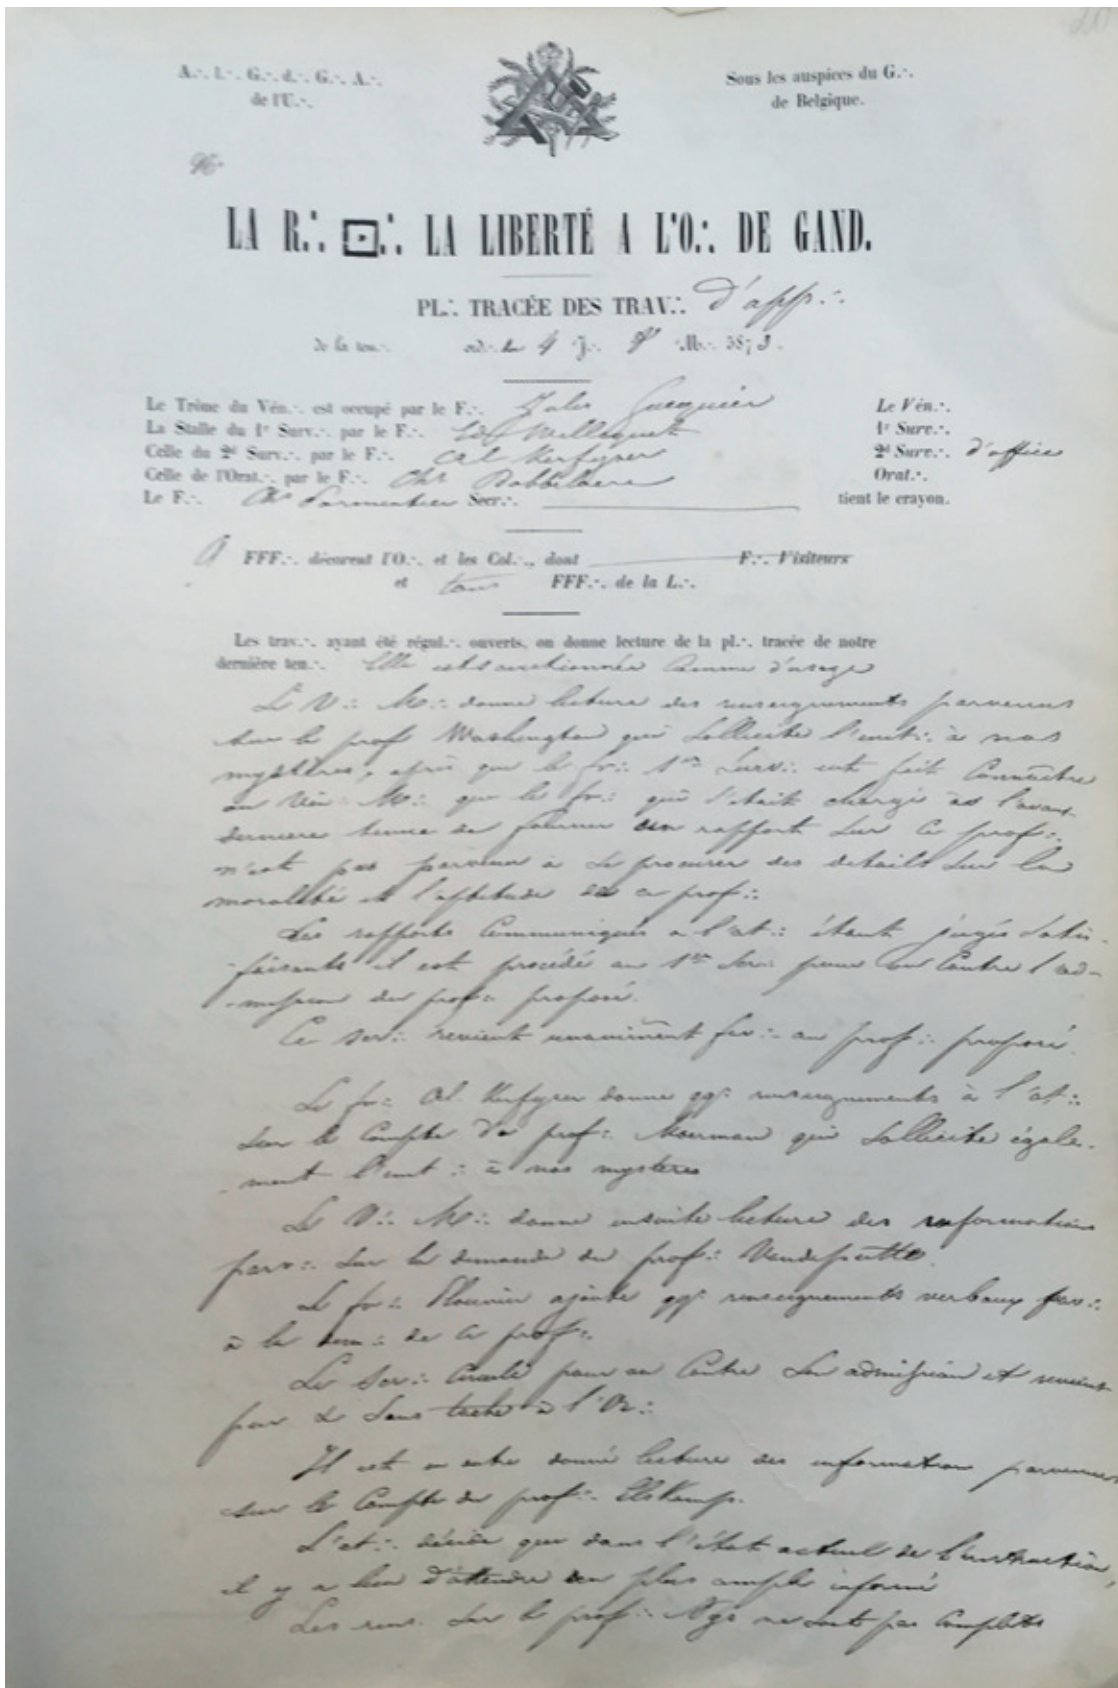 20
A.·. L.·. G.·. d.·. G.·. A.·.
de l'U.·.
Sous les auspices du G.·.
de Belgique.
N°
LA R.·. .·. LA LIBERTÉ A L'O.·. DE GAND.
PL.·. TRACÉE DES TRAV.·. d'app.·.
de la ten.·. ord.·. du 4 J.·. M.·. 5873.
Le Trône du Vén.·. est occupé par le F.·. Jules Le Vén.·.
La Stalle du 1r Surv.·. par le F.·. Ed. Willequet 1r Surv.·.
Celle du 2d Surv.·. par le F.·. Al Kerfyser 2d Surv.·. d'office
Celle de l'Orat.·. par le F.·. Chs Dobbelaere Orat.·.
Le F.·. Chs Parmentier Secr.·. tient le crayon.
9 FFF.·. décorent l'O.·. et les Col.·., dont F.·. Visiteurs
et tous FFF.·. de la L.·.
Les trav.·. ayant été régul.·. ouverts, on donne lecture de la pl.·. tracée de notre
dernière ten.·. Elle est sanctionnée comme d'usage
Le V.·. M.·. donne lecture des renseignements parvenus
sur le prof Washington qui sollicite l'init.·. à nos
mystères, après que le fr.·. 1er Surv.·. eut fait connaître
au Vén.·. M.·. que le fr.·. qui s'était chargé à l'avant
dernière tenue de fournir un rapport sur ce prof.·.
n'est pas parvenu à se procurer des détails sur la
moralité et l'aptitude de ce prof.·.
Les rapports communiqués à l'at.·. étant jugés satis-
-faisants il est procédé au 1er Scr.·. pour ou contre l'ad-
-mission du prof.·. proposé.
Ce scr.·. revient unaniment fav.·. au prof.·. proposé.
Le fr.·. Al. Kerfyser donne qq. renseignements à l'at.·.
sur le compte du prof.·. Moerman qui sollicite égale-
-ment l'init.·. à nos mystères
Le V.·. M.·. donne ensuite lecture des informations
parv.·. sur la demande du prof.·. Vandeputte.
Le fr.·. Plouvier ajoute qq. renseignements verbaux fav.·.
à la dem.·. de ce prof.·.
Le Scr.·. circule pour ou contre son admission et revient
pur & sans tache à l'Or.·.
Il est en outre donné lecture des information parvenues
sur le compte du prof.·. Elskamp.
L'at.·. décide que dans l'état actuel de l'instruction,
il y a lieu d'attendre un plus ample informé
Les rens. sur le prof.·. Nys ne sont pas complets